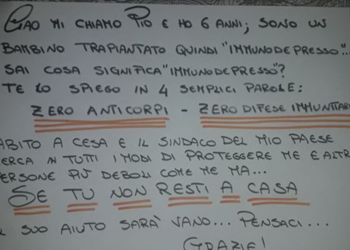 CIAO MI CHIAMO PIO E HO 6 ANNI; SONO UN
BAMBINO TRAPIANTATO QUINDI "IMMUNODEPRESSO"...
SAI COSA SIGNIFICA "IMMUNODEPRESSO"?
TE LO SPIEGO IN 4 SEMPLICI PAROLE:
ZERO ANTICORPI - ZERO DIFESE IMMUNITARI
ABITO A CESA E IL SINDACO DEL MIO PAESE
CERCA IN TUTTI I MODI DI PROTEGGERE ME E ALTR
PERSONE PIÙ DEBOLI COME ME MA...
SE TU NON RESTI A CASA
IL SUO AIUTO SARÀ VANO... PENSACI...
GRAZIE!